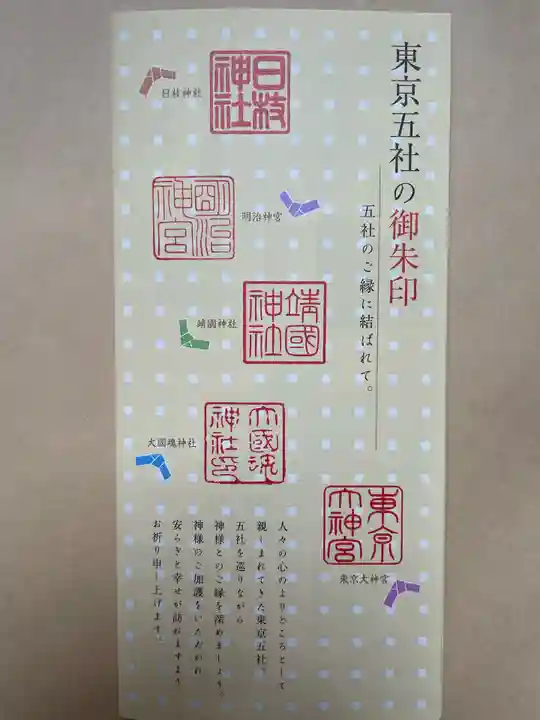 東京五社の御朱印
五社のご縁に結ばれて。
日枝神社
日枝神社
明治神宮
明治神宮
靖國神社
靖國神社
大國魂神社印
大國魂神社
東京大神宮
東京大神宮
人々の心のよりどころとして
親しまれてきた東京五社。
五社を巡りながら
神様とのご縁を深めましょう。
神様のご加護をいただかれ
安らぎと幸せが訪れますよう
お祈り申し上げます。